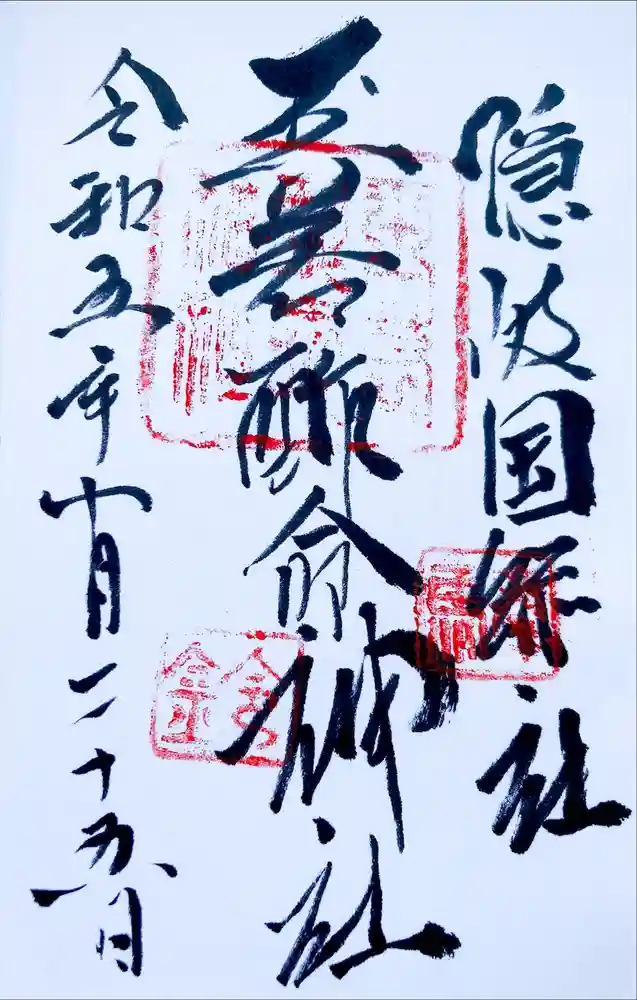 隠岐国総社
玉若酢命神社
令和五年十月二十五日